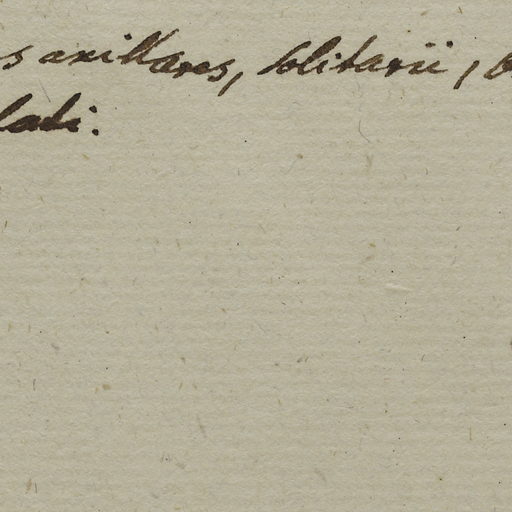 s axillares, solitarii,
lati.